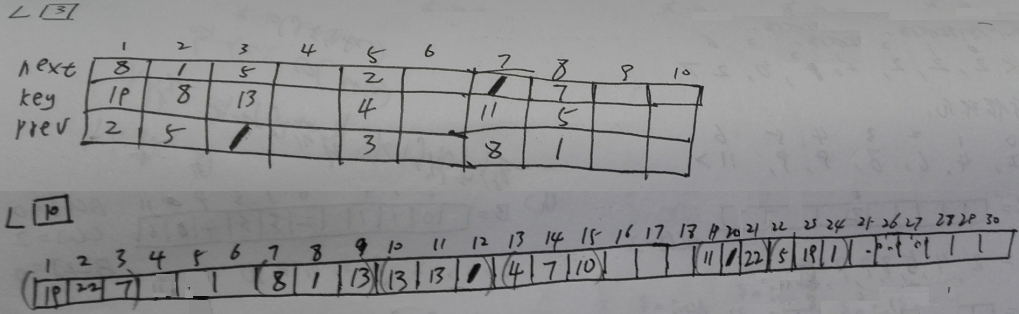 L 3
1 2 3 4 5 6 7 8 9 10
next 8 1 5 2 / 7
key 19 8 13 4 11 5
prev 2 5 / 3 8 1
L 10
1 2 3 4 5 6 7 8 9 10 11 12 13 14 15 16 17 18 19 20 21 22 23 24 25 26 27 28 29 30
19 22 7 8 1 13 13 13 / 4 7 10 11 / 22 5 19 1